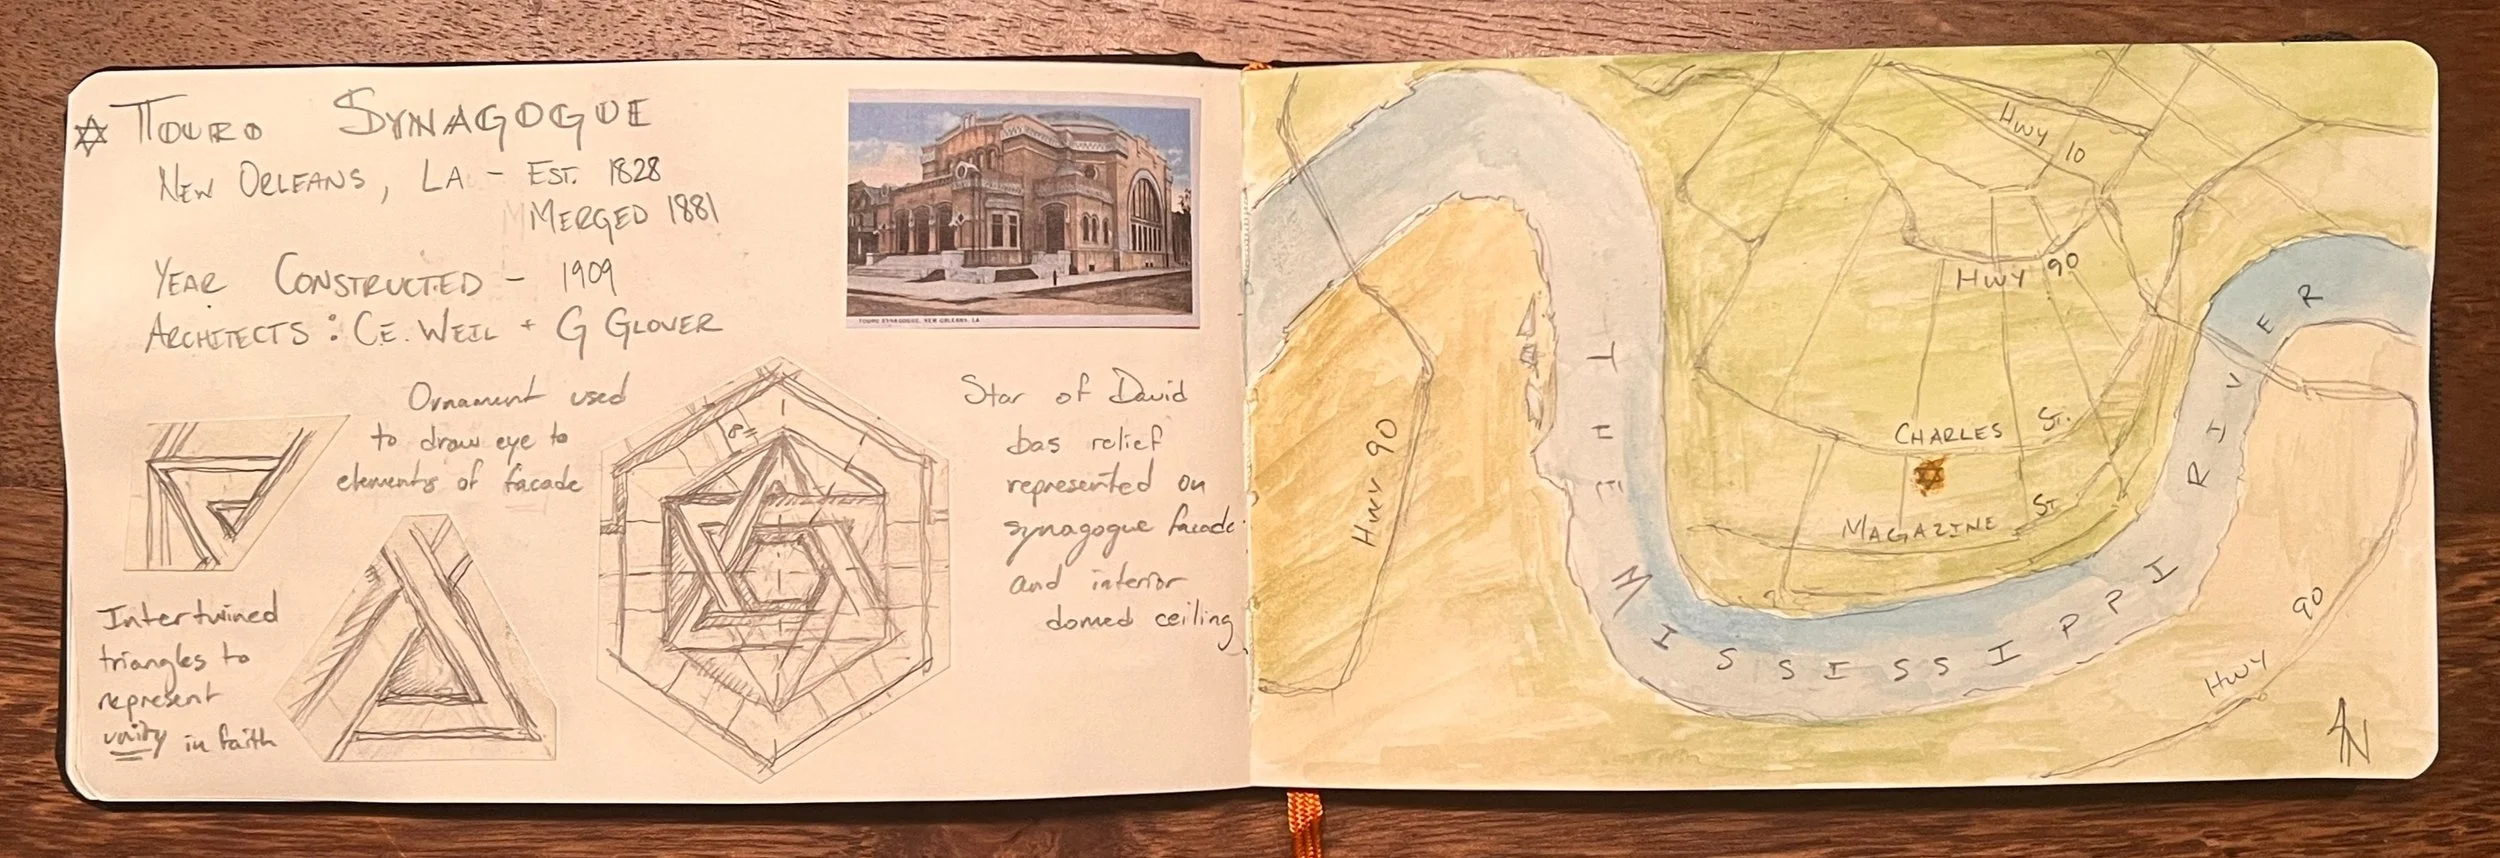 TOURO SYNAGOGUE
NEW ORLEANS, LA - EST. 1828
MERGED 1881
YEAR CONSTRUCTED - 1909
ARCHITECTS : CE. WEIL + G GLOVER
TOURO SYNAGOGUE, NEW ORLEANS, LA
Ornament used
to draw eye to
elements of facade
Intertwined
triangles to
represent
unity in faith
Star of David
bas relief
represented on
synagogue facade
and interior
domed ceiling
HWY 10
HWY 90
CHARLES ST.
MAGAZINE ST
HWY 90
THE MISSISSIPPI RIVER
HWY 90
N